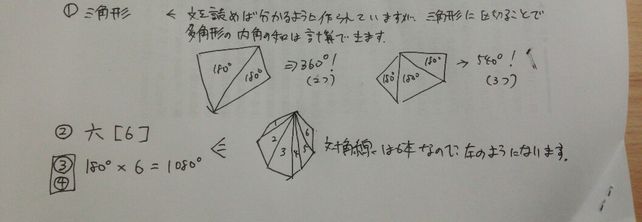 ① 三角形 ← 文を読めば分かるように作られていますが、三角形に区切ることで
多角形の内角の和は計算で出ます。
180° 180° ⇒ 360°! (2つ)
180° 180° 180° → 540°! (3つ)
② 六 [6]
1 2 3 4 5 6 対角線は6本なので、左のようになります。
③ ④ 180° × 6 = 1080°